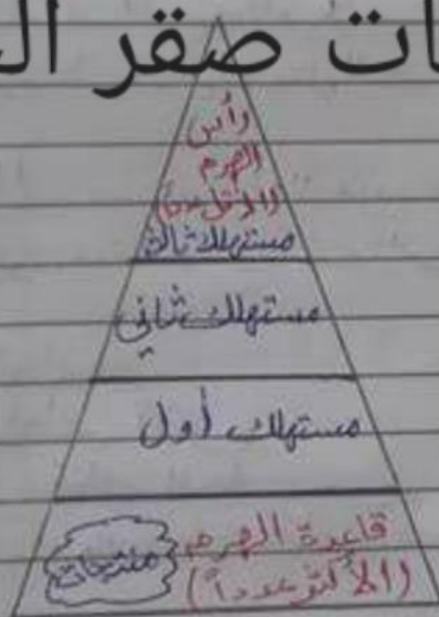 ات صقر ال
رأس
الهرم
(الأقل عدداً)
مستهلك ثالث
مستهلك ثاني
مستهلك أول
قاعدة الهرم
(الأكثر عدداً)
منتجات